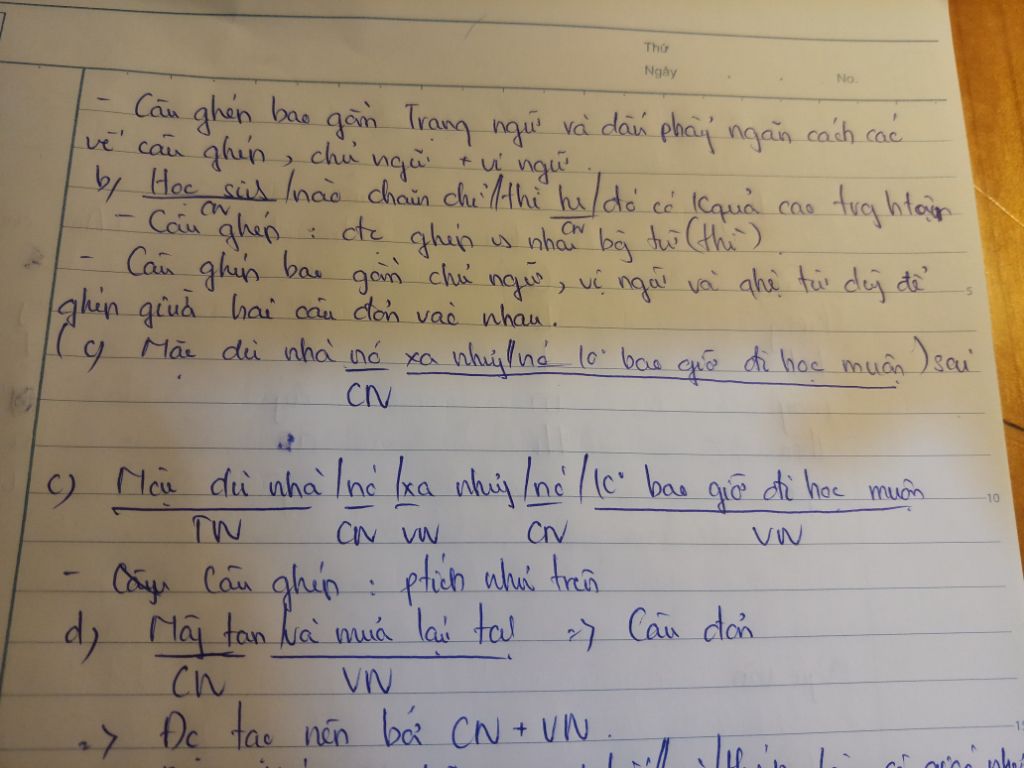 Thứ
Ngày No.
- Câu ghép bao gồm Trạng ngữ và dấu phẩy ngăn cách các
vế câu ghép, chủ ngữ + vị ngữ.
b) Học sinh / nào chăm chỉ // thì hs / đó có kquả cao trg htập
CN CN
- Câu ghép : đc ghép vs nhau bằng từ (thì)
- Câu ghép bao gồm chủ ngữ, vị ngữ và qhệ từ dùng để
ghép giữa hai câu đơn vào nhau.
( c) Mặc dù nhà nó xa nhưng // nó k bao giờ đi học muộn ) sai
CN
c) Mặc dù nhà / nó / xa nhưng / nó / k bao giờ đi học muộn
TN CN VN CN VN
- Câu ghép : ptích như trên
d) Mây tan và mưa lại tạnh => Câu đơn
CN VN
=> Đc tạo nên bởi CN + VN.
5
10